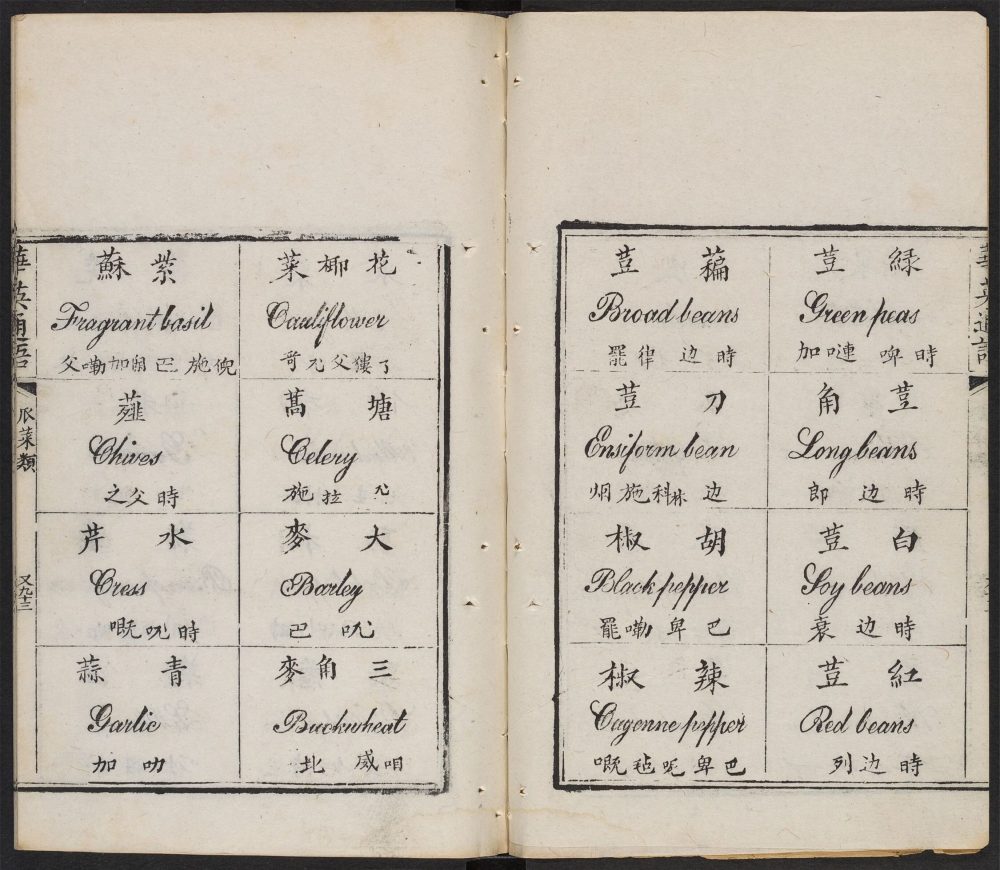 華英通語
綠荳
Green peas
加嗹啤時
荳角
Long beans
郎边時
白荳
Soy beans
衰边時
紅荳
Red beans
列边時
藊荳
Broad beans
罷律边時
刀荳
Ensiform bean
烟施科林边
胡椒
Black pepper
罷嘞卑巴
辣椒
Cayenne pepper
嘅毡呢卑巴
花椰菜
Cauliflower
父
塘蒿
Celery
施拉
大麥
Barley
巴
三角麥
Buckwheat
北威咱
紫蘇
Fragrant basil
父嘞加巴施倪
薤
Chives
之父時
水芹
Cress
嘅時
青蒜
Garlic
加叻
華英通語
瓜菜類
又九十三